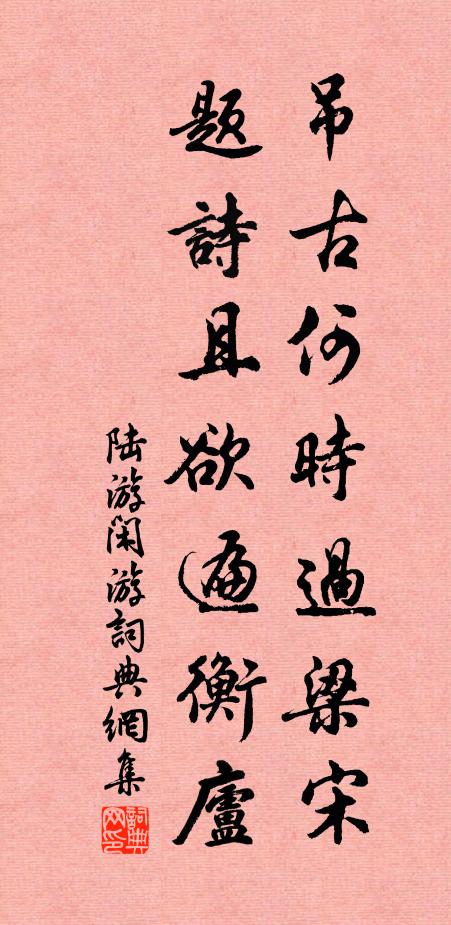 吊古何時過梁宋
題詩且欲遍衡廬
陆游閑游詞典網集
詞典网印